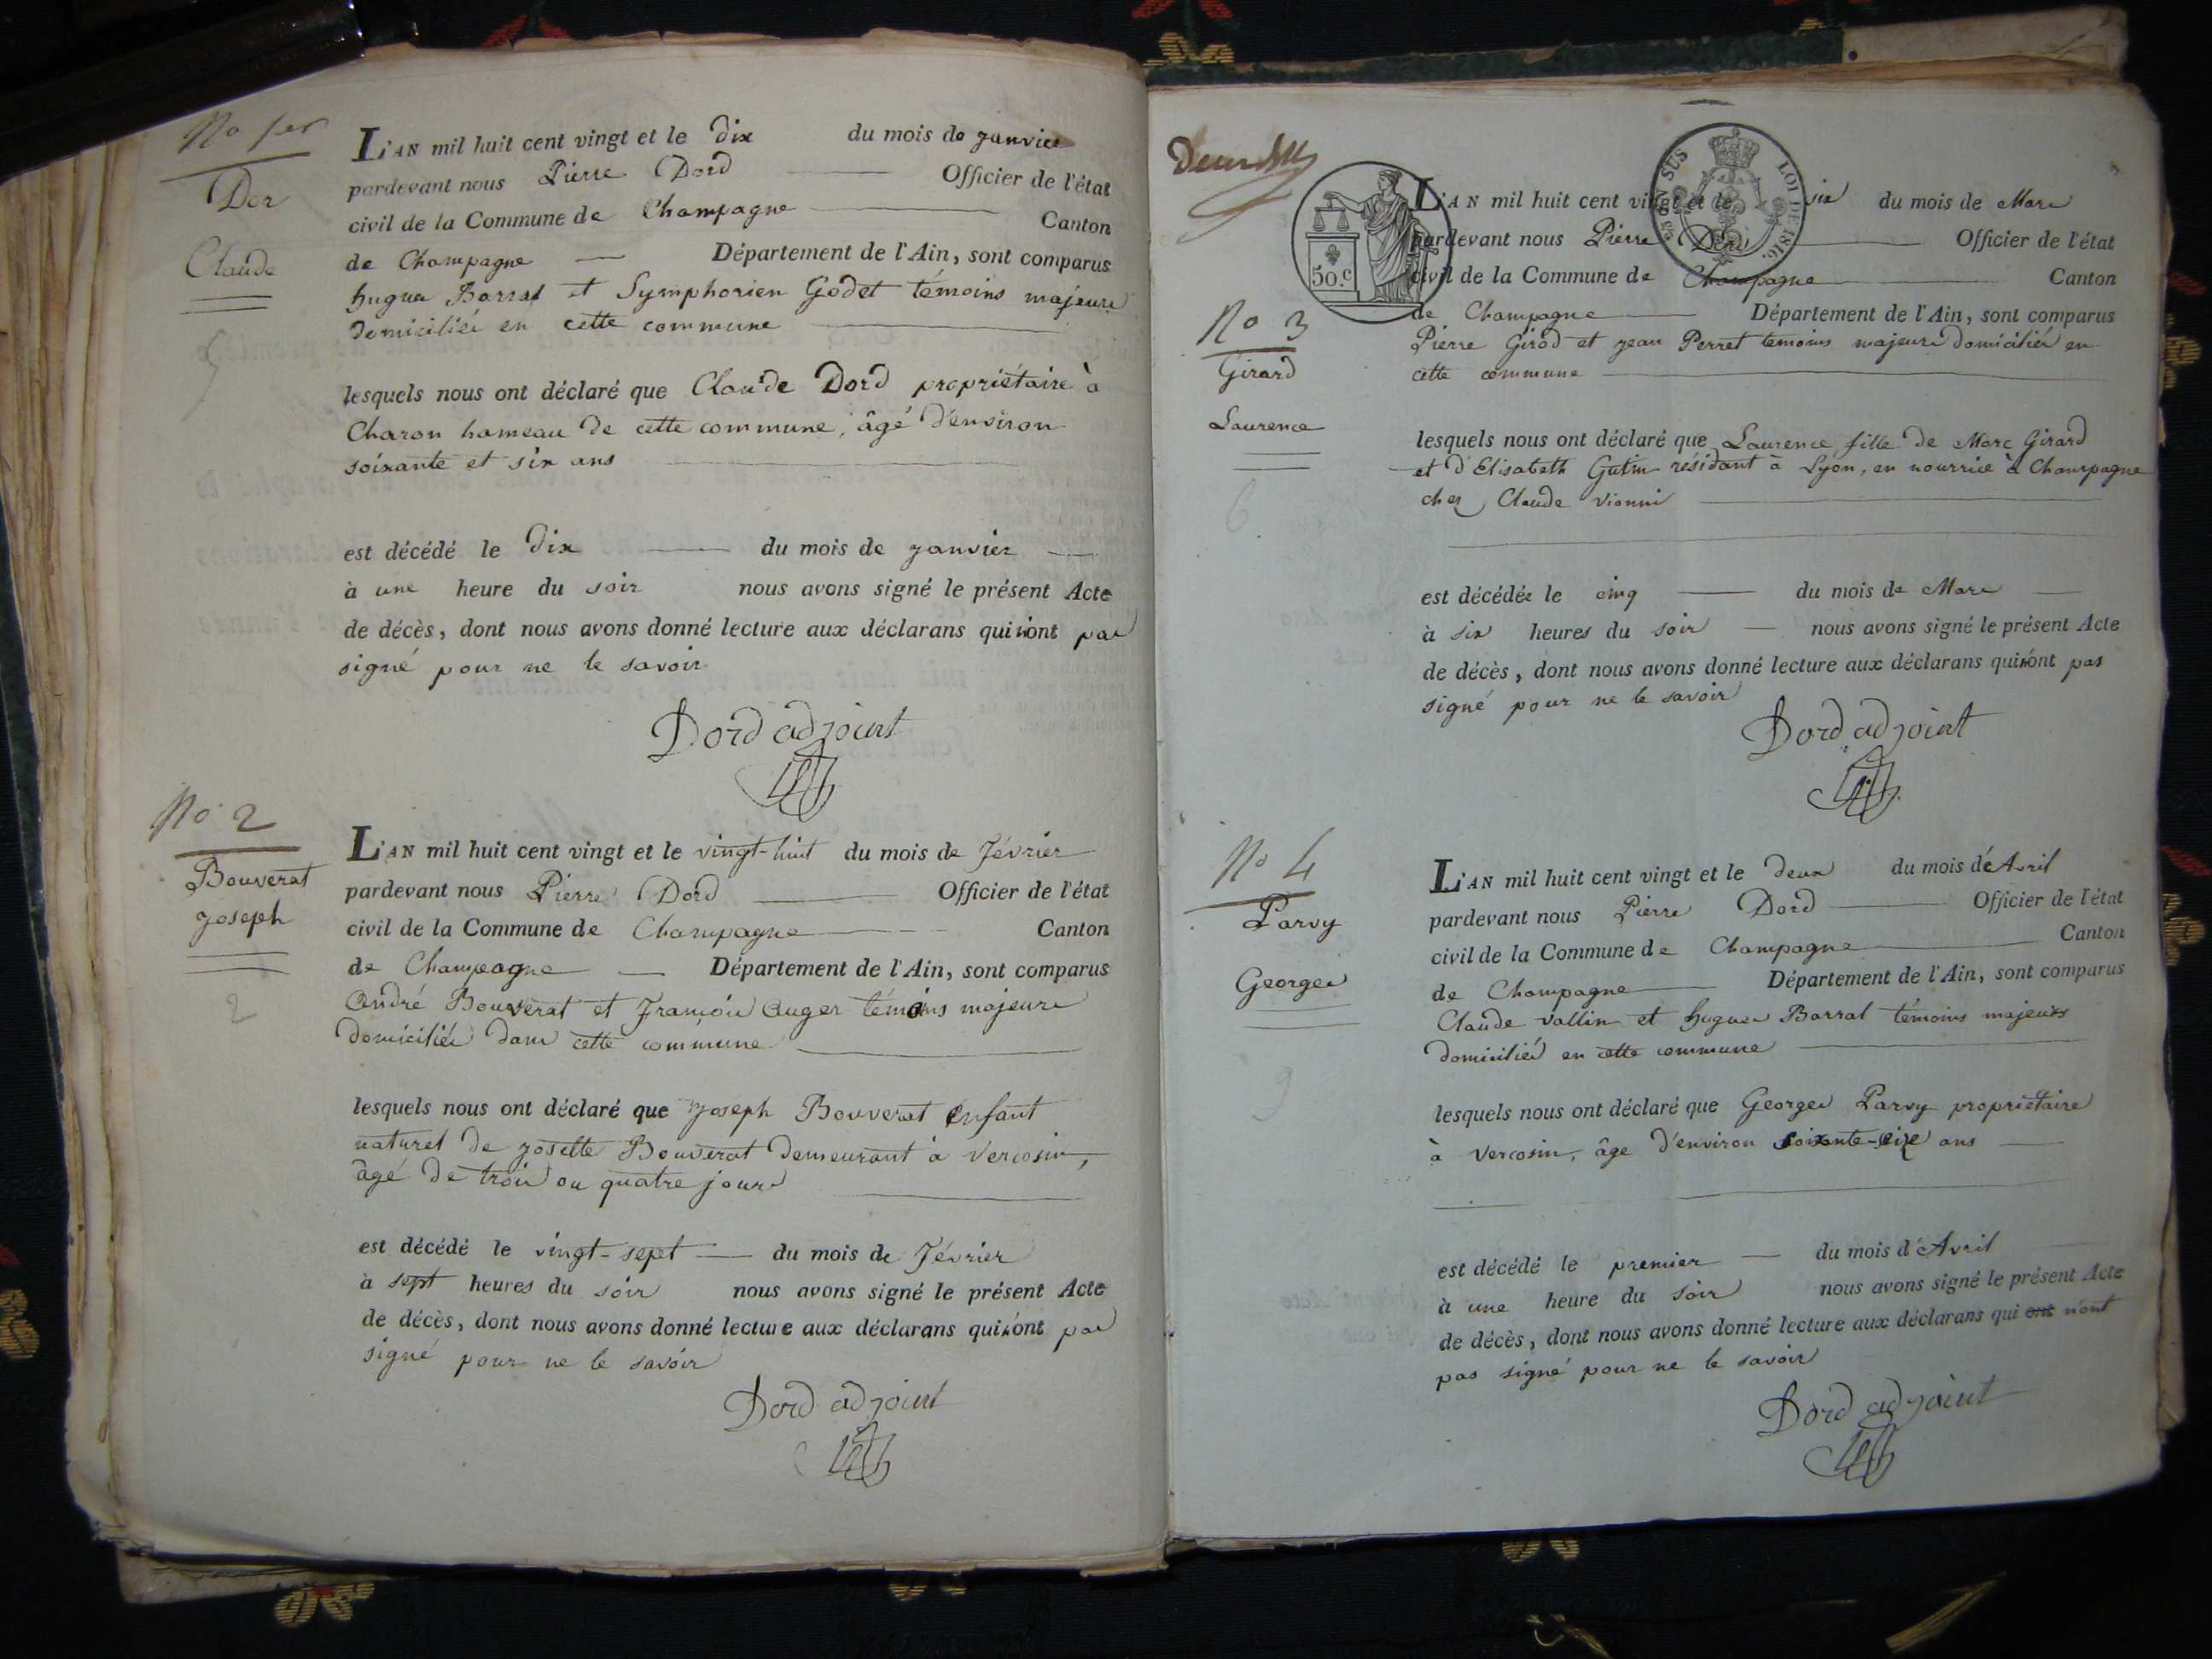 No 1er
Dor
Claude
L'AN mil huit cent vingt et le dix du mois de janvier
pardevant nous Pierre Dord Officier de l'état
civil de la Commune de Champagne Canton
de Champagne Département de l'Ain, sont comparus
hugues Barral et Symphorien Godet témoins majeurs
domiciliés en cette commune
lesquels nous ont déclaré que Claude Dord propriétaire à
Charon hameau de cette commune, âgé d'environ
soixante et six ans
est décédé le dix du mois de janvier
à une heure du soir nous avons signé le présent Acte
de décès, dont nous avons donné lecture aux déclarans qui n'ont pas
signé pour ne le savoir
Dord adjoint
No 2
Bouverat
joseph
2
L'AN mil huit cent vingt et le vingt-huit du mois de février
pardevant nous Pierre Dord Officier de l'état
civil de la Commune de Champagne Canton
de Champagne Département de l'Ain, sont comparus
André Bouverat et François Auger témoins majeurs
domiciliés dans cette commune
lesquels nous ont déclaré que joseph Bouverat enfant
naturel de josette Bouverat demeurant à Vercosin,
âgé de trois ou quatre jours
est décédé le vingt-sept du mois de février
à sept heures du soir nous avons signé le présent Acte
de décès, dont nous avons donné lecture aux déclarans qui n'ont pas
signé pour ne le savoir
Dord adjoint
50.c
EN SUS LOI DE 1816.
No 3
Girard
Laurence
6
L'AN mil huit cent vingt et le six du mois de Mars
pardevant nous Pierre Dord Officier de l'état
civil de la Commune de Champagne Canton
de Champagne Département de l'Ain, sont comparus
Pierre Girod et jean Perret temoins majeurs domiciliés en
cette commune
lesquels nous ont déclaré que Laurence fille de Marc Girard
et d'Elisabeth résidant à Lyon, en nourrice à Champagne
chez Claude Vionni
est décédée le cinq du mois de Mars
à six heures du soir nous avons signé le présent Acte
de décès, dont nous avons donné lecture aux déclarans qui n'ont pas
signé pour ne le savoir
Dord adjoint
No 4
Parvy
Georges
9
L'AN mil huit cent vingt et le deux du mois d'Avril
pardevant nous Pierre Dord Officier de l'état
civil de la Commune de Champagne Canton
de Champagne Département de l'Ain, sont comparus
Claude Vallin et hugues Barral témoins majeurs
domiciliés en cette commune
lesquels nous ont déclaré que Georges Parvy propriétaire
à Vercosin, âgé d'environ ans
est décédé le premier du mois d'Avril
à une heure du soir nous avons signé le présent Acte
de décès, dont nous avons donné lecture aux déclarans qui ont n'ont
pas signé pour ne le savoir
Dord adjoint